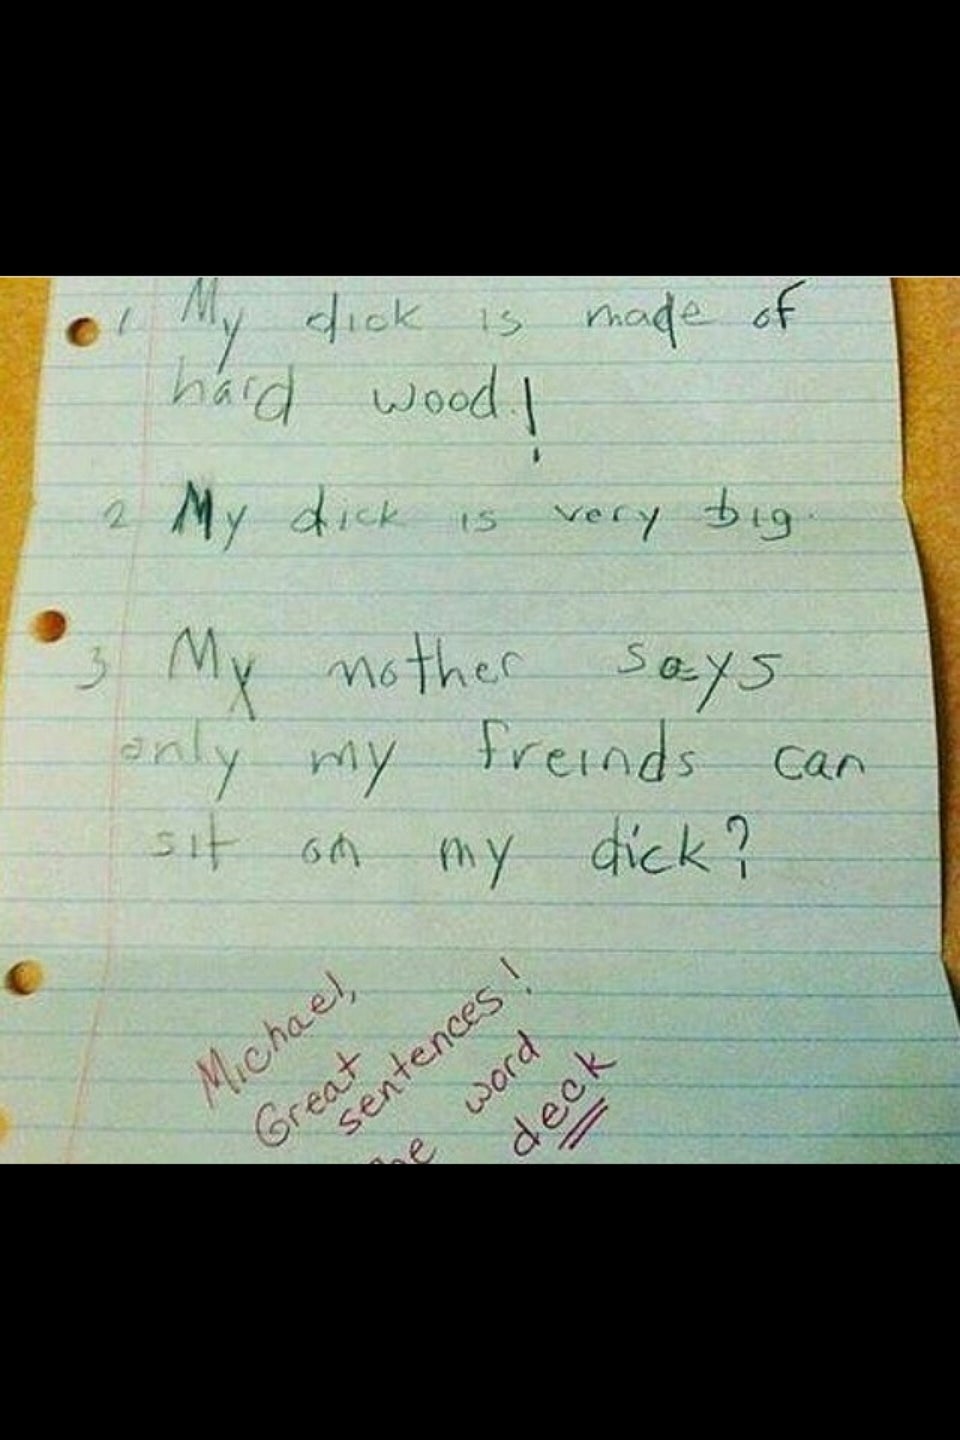 1 My dick is made of
hard wood!
2 My dick is very big.
3 My mother says
only my freinds can
sit on my dick?
Michael,
Great
sentences!
word
deck